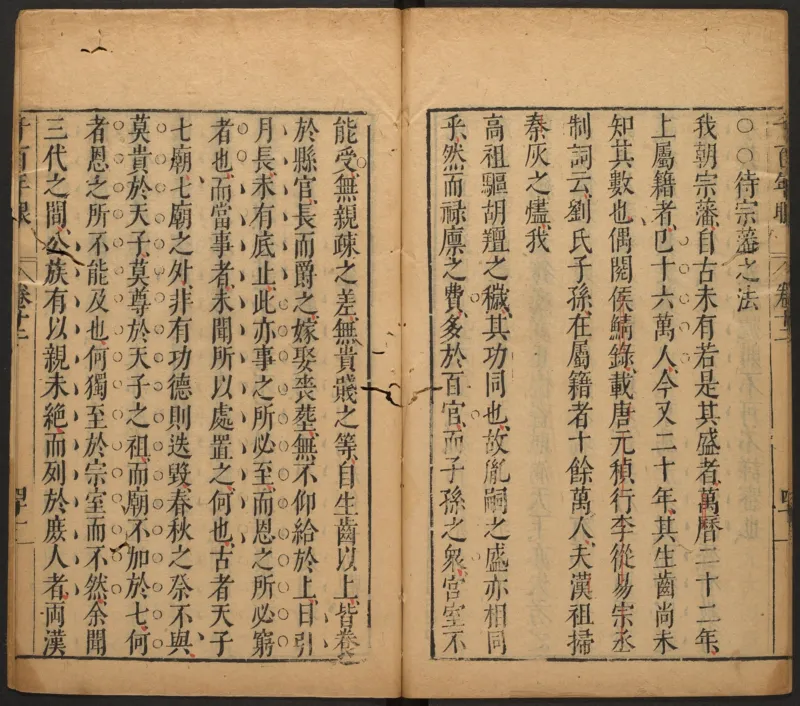 待宗藩之法
我朝宗藩自古未有若是其盛者萬曆二十二年
上屬籍者已十六萬人今又二十年其生齒尚未
知其數也偶閱侯鯖錄載唐元稹行李從易宗丞
制詞云劉氏子孫在屬籍者十餘萬人夫漢祖掃
秦灰之燼我
高祖驅胡羶之穢其功同也故胤嗣之盛亦相同
乎然而祿廪之費多於百官而子孫之衆宮室不
能受無親疎之差無貴賤之等自生齒以上皆養
於縣官長而爵之嫁娶喪塟無不仰給於上日引
月長未有底止此亦事之所必至而恩之所必窮
者也而當事者未聞所以處置之何也古者天子
七廟七廟之外非有功德則迭毀春秋之祭不與
莫貴於天子莫尊於天子之祖而廟不加於七何
者恩之所不能及也何獨至於宗室而不然余聞
三代之間公族有以親未絶而列於庶人者兩漢
千百年眼
卷十二